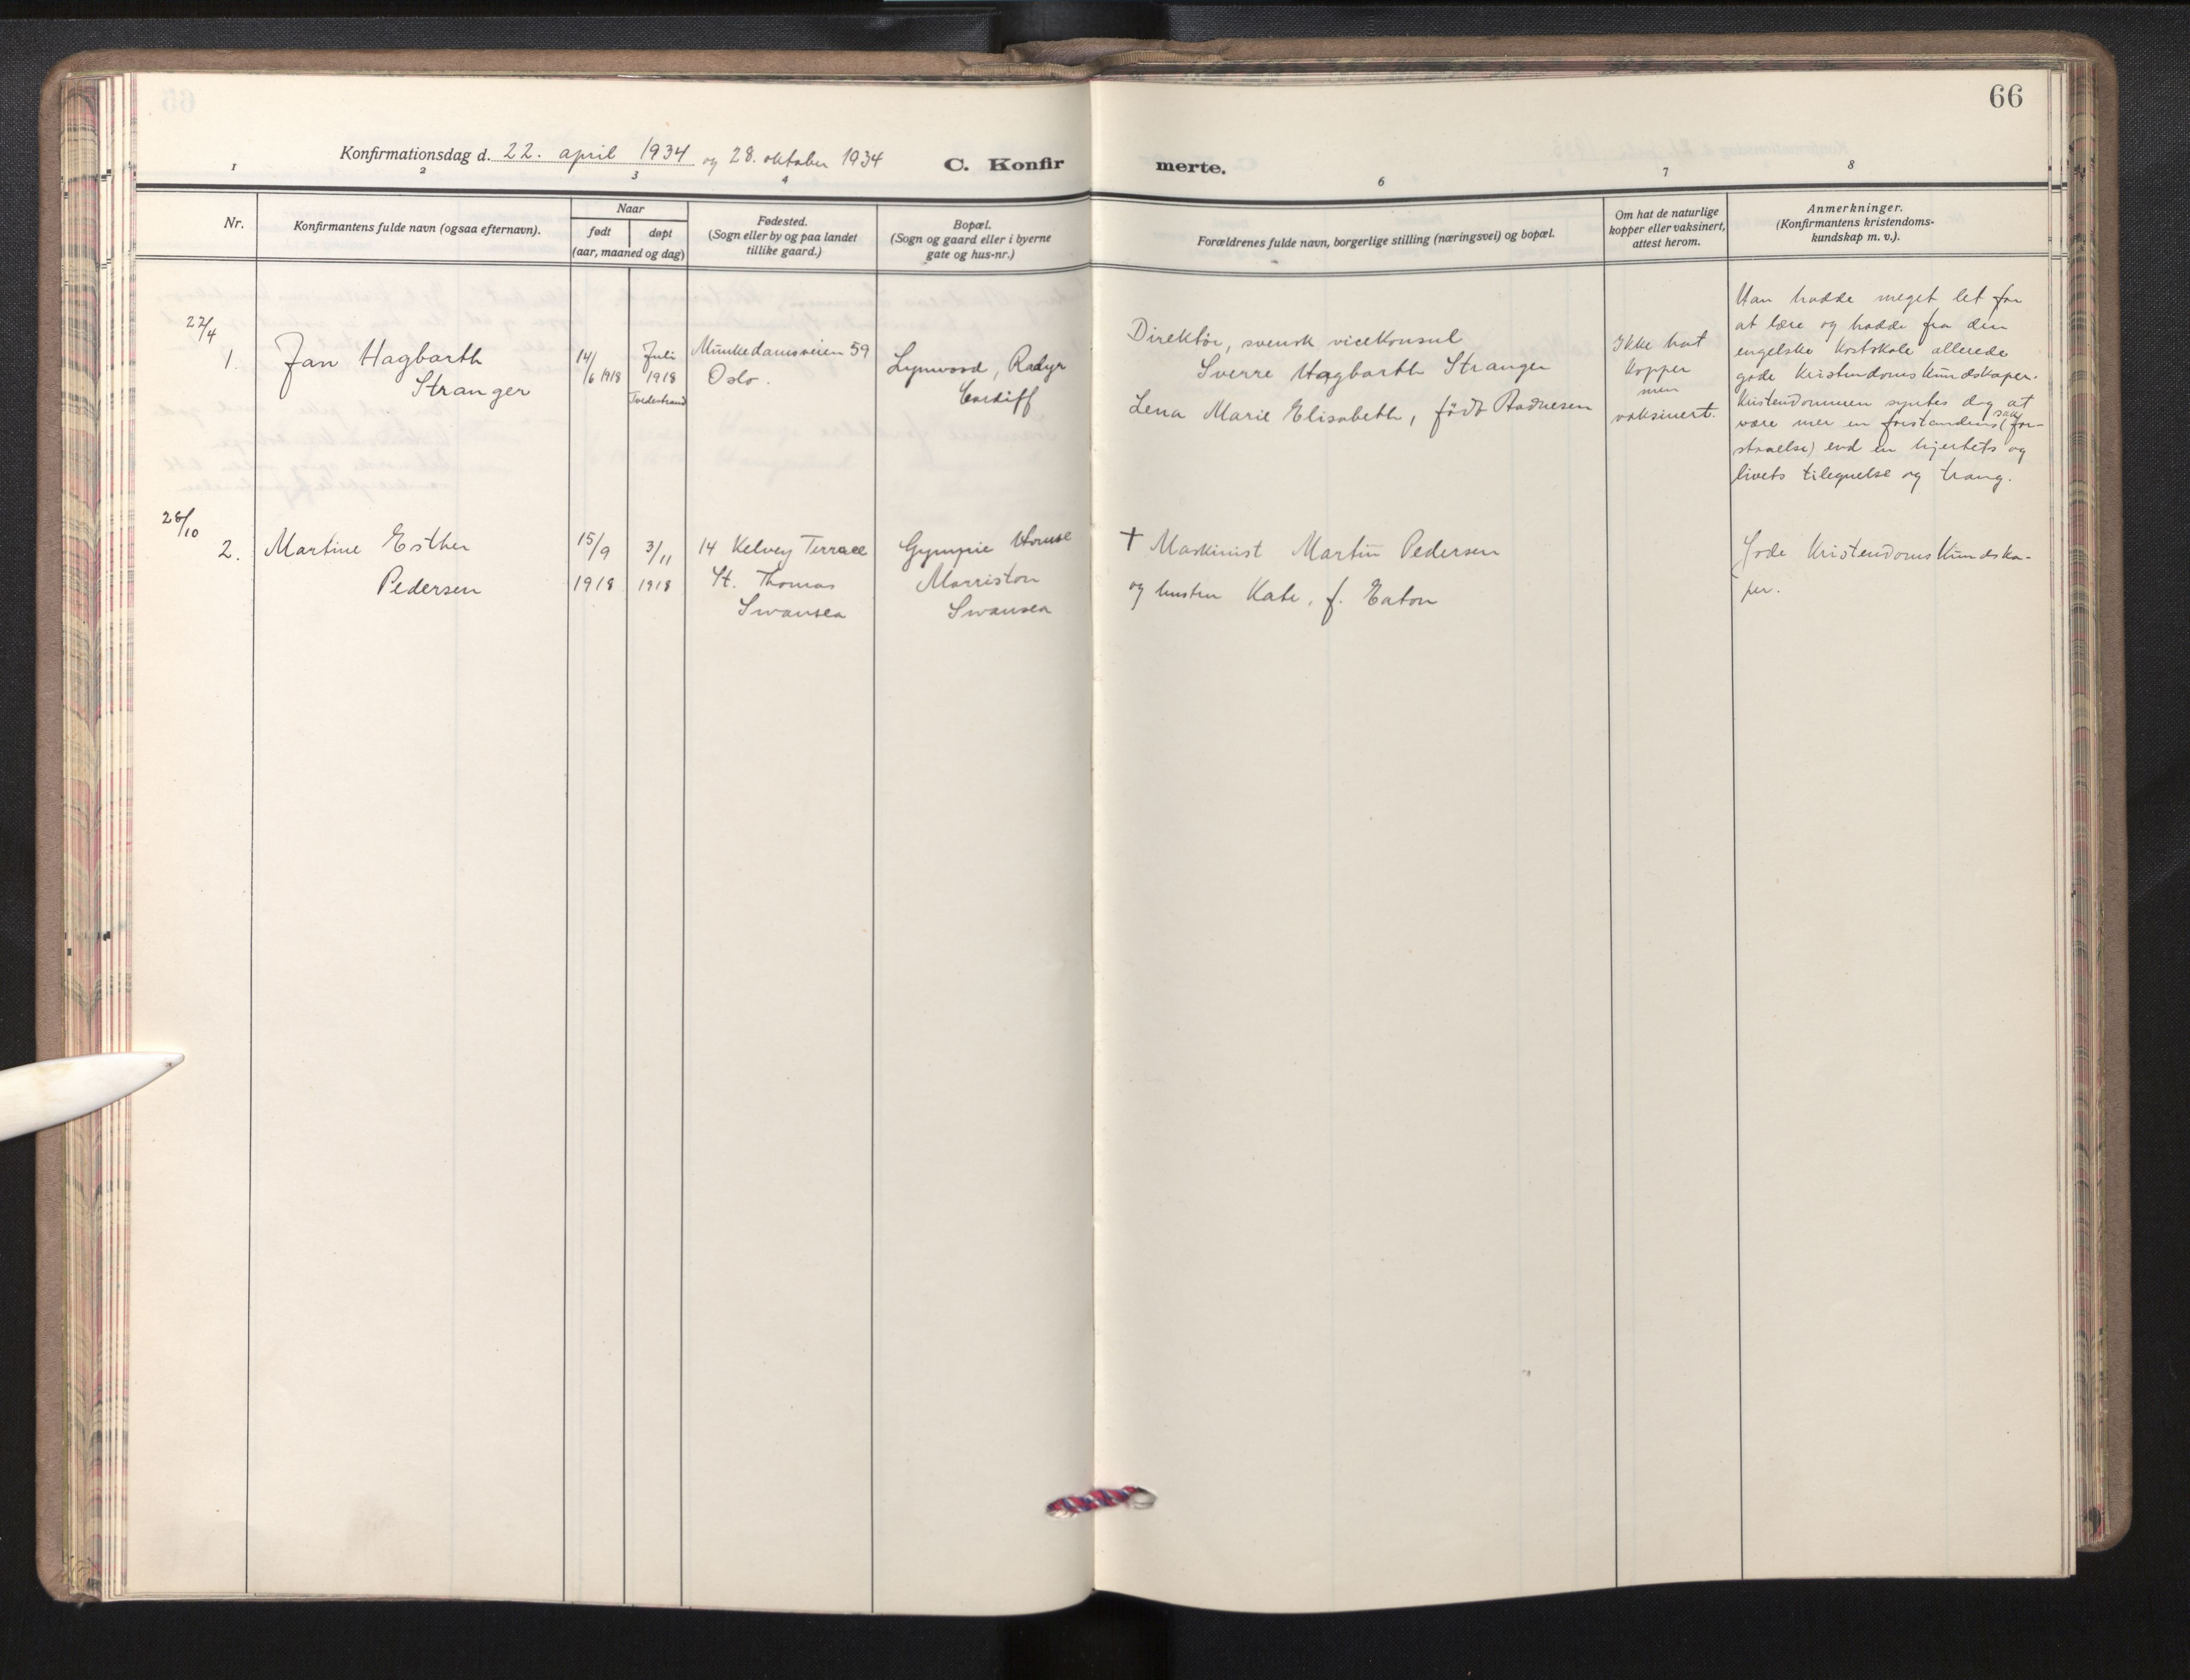 66
Konfirmationsdag d. 22. april 1934 og 28. oktober 1934
C. Konfirmerte.
1 2 3 4 6 7 8
Nr.
Konfirmantens fulde navn (ogsaa efternavn).
Naar
født
døpt
(aar, maaned og dag)
Fødested.
(Sogn eller by og paa landet
tillike gaard.)
Bopæl.
(Sogn og gaard eller i byerne
gate og hus-nr.)
Forældrenes fulde navn, borgerlige stilling (næringsvei) og bopæl.
Om hat de naturlige
kopper eller vaksinert,
attest herom.
Anmerkninger.
(Konfirmantens kristendoms-
kundskap m. v.).
22/4
1.
Jan Hagbarth
Stranger
14/6 1918
Juli
1918
Tvedestrand
Munkedamsveien 59
Oslo.
Lynwood, Radyr
Cardiff
Direktør, svensk vicekonsul
Sverre Hagbarth Stranger
Lena Marie Elisabeth, født Aadnesen
Ikke hat
kopper
men
vaksinert.
Han hadde meget let for
at lære og hadde fra den
engelske kostskole allerede
gode kristendomskundskaper.
Kristendommen syntes dog at
være mer en forstandens sak (for-
staaelse) end en hjertets og
livets tilegnelse og trang.
28/10
2.
Martine Esther
Pedersen
15/9
1918
3/11
1918
14 Kelvey Terrace
St. Thomas
Swansea
Gympie House
Morriston
Swansea
† Maskinist Martin Pedersen
og hustru Kate, f. Eaton
Gode Kristendomskundska-
per.